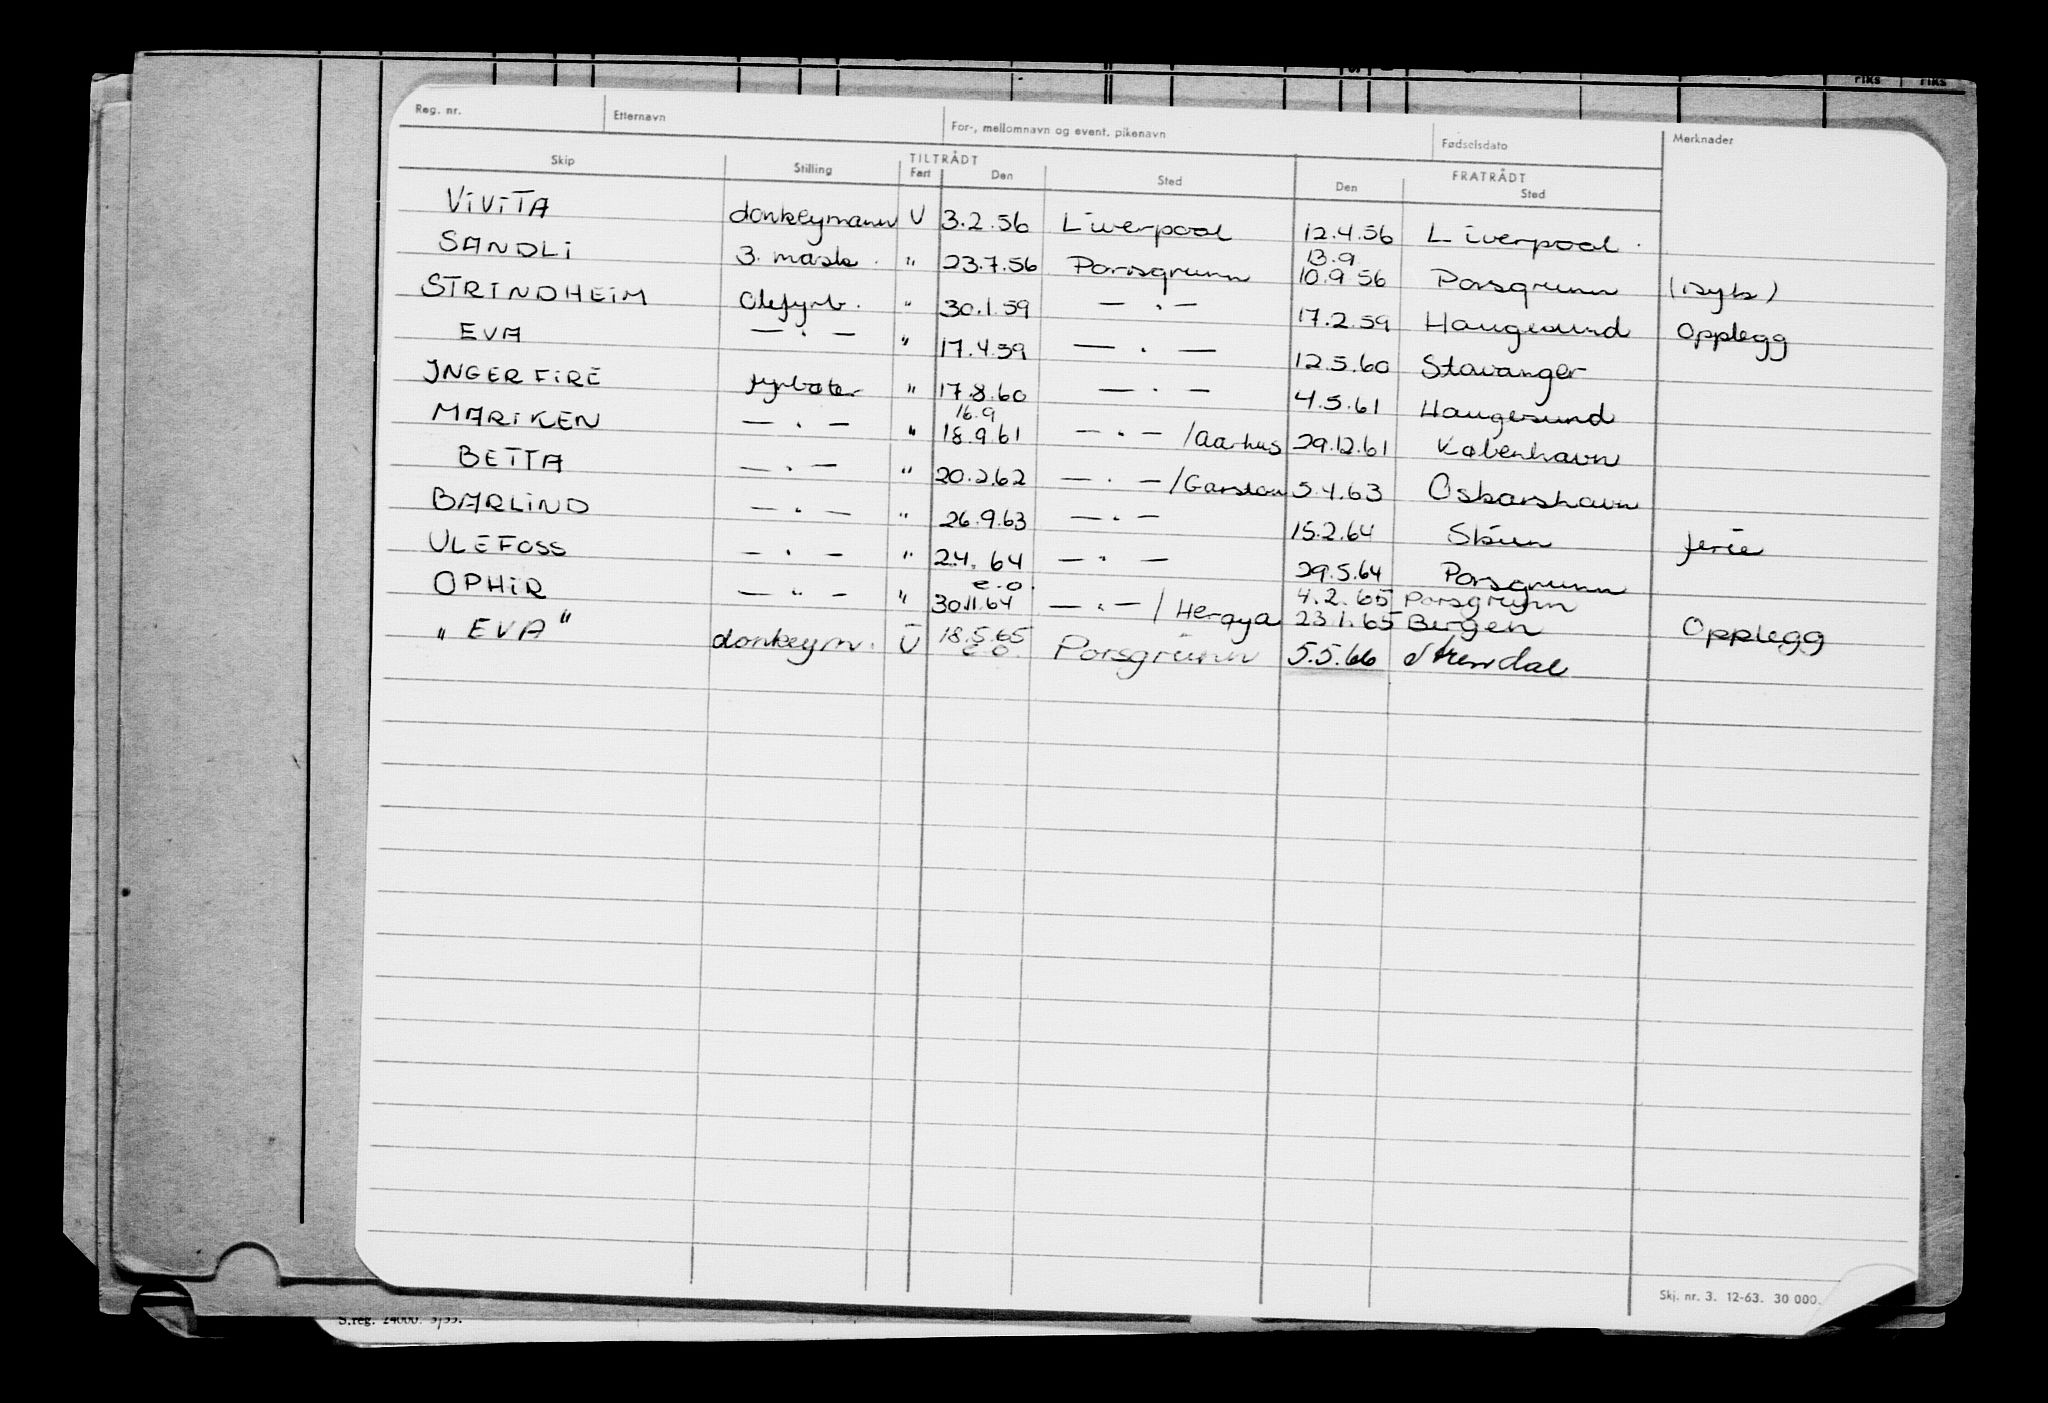 riks riks
Reg. nr. Etternavn For-, mellomnavn og event. pikenavn Fødselsdato Merknader
TILTRÅDT FRATRÅDT
Skip Stilling Fart Den Sted Den Sted
ViViTA donkeymann U 3.2.56 Liverpool 12.4.56 Liverpool.
13.9
SANDLi 3. mask. " 23.7.56 Porsgrunn 10.9 56 Porsgrunn (syk)
STRINDHEiM Olefyrb. " 30.1.59 — . — 17.2.59 Haugesund Opplegg
EVA — . — " 17.4.59 — . — 12.5.60 Stavanger
INGER FiRE fyrbøter " 17.8.60 — . — 4.5.61 Haugesund
16.9
MARiKEN — . — " 18.9.61 — . — /Aarhus 29.12.61 København
BETTA — . — " 20.2.62 — . — /Garston 5.4.63 Oskarshavn
BARLiND — . — " 26.9.63 — . — 15.2.64 Skien ferie
ULEFOSS — . — " 2.4. 64 — . — 29.5.64 Porsgrunn
e.o. 4.2.65 Porsgrunn
OPHiR — " — " 30.11.64 — . — / Herøya 23.1.65 Bergen Opplegg
"EVA" donkeym. U 18.5.65 Porsgrunn 5.5.66
e.o.
Skj. nr. 3. 12-63. 30 000.
S.reg. 24000. 3/55.